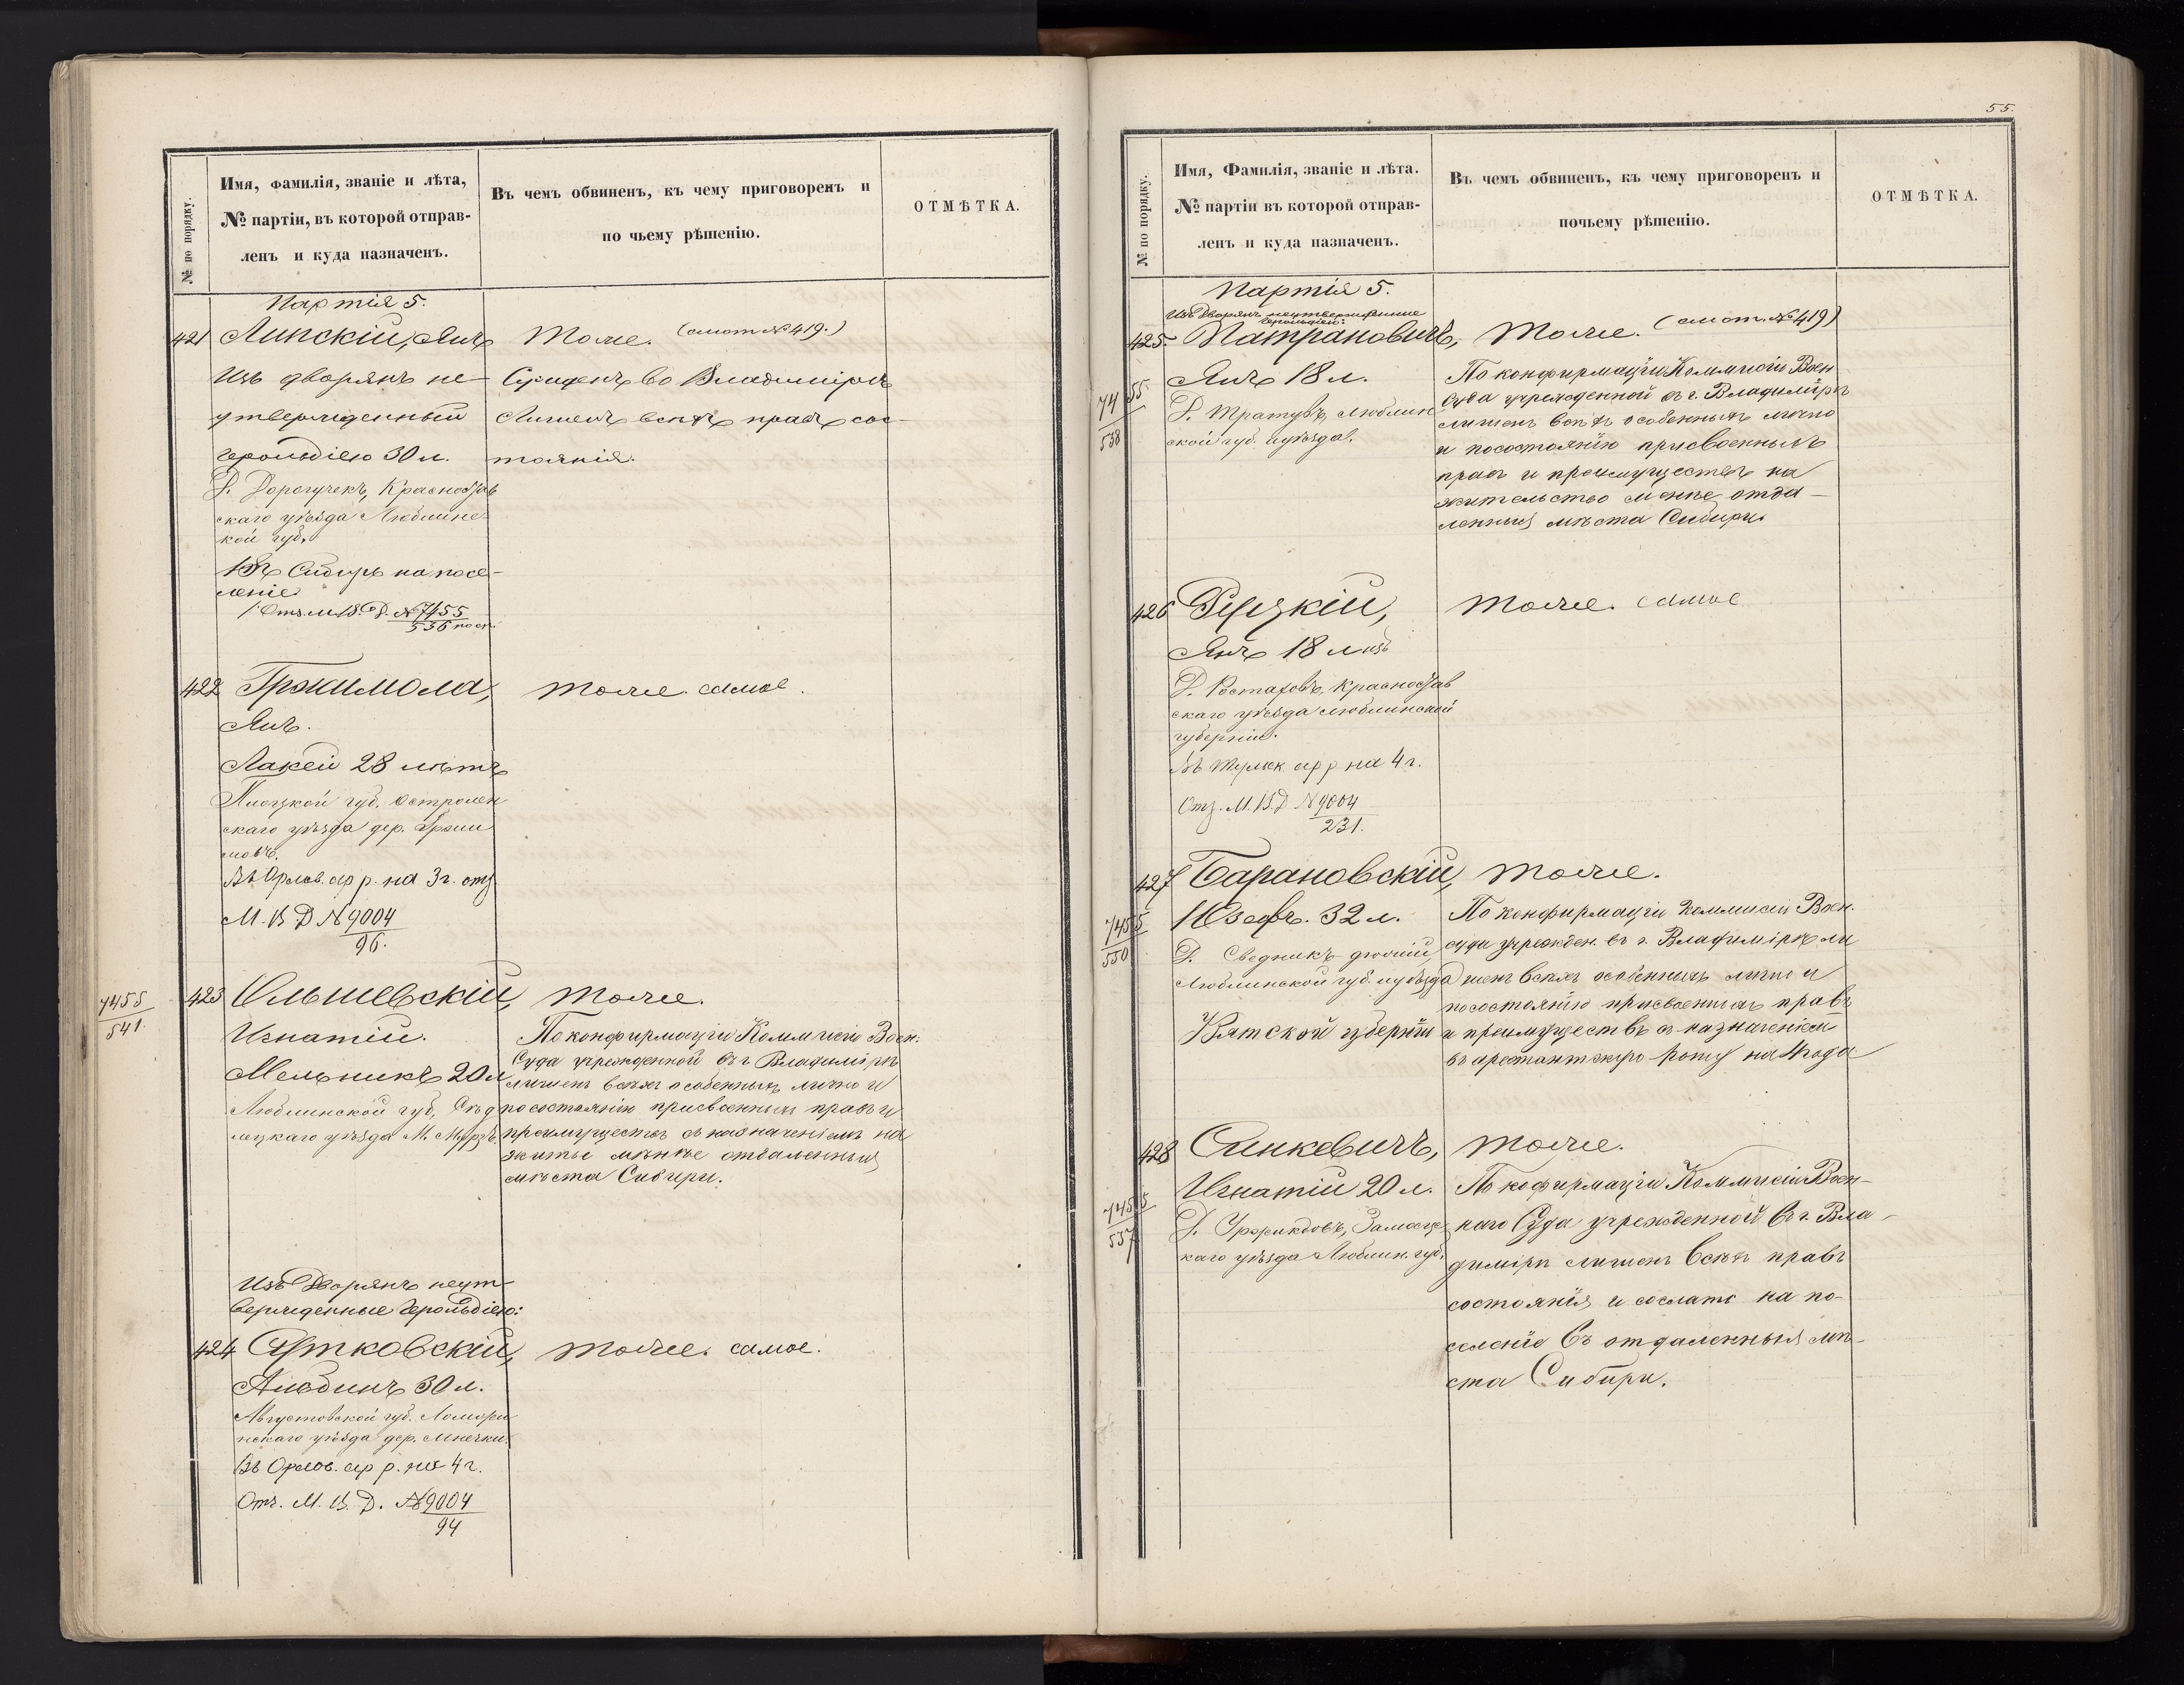 № по порядку.
Имя, фамилія, званіе и лѣта,
№ партіи, въ которой отправ-
ленъ и куда назначенъ.
Въ чемъ обвиненъ, къ чему приговоренъ и
по чьему рѣшенію.
ОТМѢТКА.
Партія 5.
421 Липскій, Янъ
Изъ дворянъ не-
утвержденный
Герольдіею 30 л.
Д. Дорогучекъ, Красностав
скаго уѣзда Люблинс-
кой губ.
Въ Сибирь на посе-
леніе
Отз. М. В. Д. № 7455
536
Тоже. (смот. № 419.)
Сужденъ во Владимірѣ
Лишенъ всѣхъ правъ сос-
тоянія.
422 Гржимола,
Янъ.
Лакей 28 лѣтъ
Плоцкой губ. Остролен
скаго уѣзда дер. Гржи
мовъ.
Въ Орлов. ар р. на 3 г. отз
М. В. Д № 9004
96.
Тоже. самое.
7455
541.
423 Ольшевскій,
Игнатій.
Мельникъ 20 л
Люблинской губ, Сѣд
лецкаго уѣзда М.
Тоже.
По конфирмаціи Коммисіи Воен.
Суда учрежденной въ г. Владимірѣ
лишенъ всѣхъ особенныхъ лично и
по состоянію присвоенныхъ правъ и
преимуществъ съ назначеніемъ на
житье менѣе отдаленныя
мѣста Сибири.
Изъ Дворянъ неут-
вержденные Герольдіею:
424 Сутковскій,
Альбинъ 30 л.
Августовской губ. Ломжи
нскаго уѣзда дер. Мнечки.
Въ Орлов. ар р. на 4 г.
Отз. М. В. Д. № 9004
94
Тоже. самое.
55.
№ по порядку.
Имя, Фамилія, званіе и лѣта.
№ партіи въ которой отправ-
ленъ и куда назначенъ.
Въ чемъ обвиненъ, къ чему приговоренъ и
почьему рѣшенію.
ОТМѢТКА.
Партія 5.
Изъ Дворянъ неутвержденные
Герольдіею:
425. Патрановичъ,
Янъ 18 л.
7455
538
Д. Тратувъ, Люблин
ской губ. и уѣзда.
Тоже. (смот. № 419)
По конфирмаціи Коммисіи Воен
Суда учрежденной въ г. Владимірѣ
лишенъ всѣхъ особенныхъ лично
и посостоянію присвоенныхъ
правъ и преимуществъ на
жительство менѣе отда-
ленныя мѣста Сибири.
426 Руцкій,
Янъ 18 лѣтъ
Д. Красностав
скаго уѣзда Люблинской
губерніи.
ар р на 4 г.
Отз. М. В. Д № 9004
231.
Тоже. самое
427 Барановскій,
Юзефъ. 32 л.
7455
550
Д. Сведникъ-дюжій,
Люблинской губ. и уѣзда
Вятской губерніи
Тоже.
По конфирмаціи Коммисіи Воен.
суда учрежден. въ г. Владимірѣ ли
шенъ всѣхъ особенныхъ лично и
посостоянію присвоенныхъ правъ
и преимуществъ съ назначеніемъ
въ арестантскую роту на 4 года
428 Синкевичъ,
Игнатій 20 л.
7455
537
Д. Замосц
каго уѣзда Люблин. губ.
Тоже.
По кофирмаціи Коммисіи Воен-
наго Суда учрежденной въ г. Вла-
димірѣ лишенъ всѣхъ правъ
состоянія и сослать на по-
селеніе въ отдаленныя мѣ-
ста Сибири.